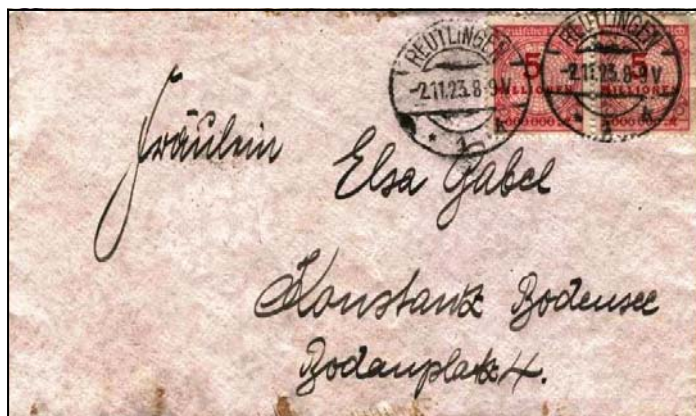 REUTLINGEN
-2.11.23.8-9V
REUTLINGEN
-2.11.23.8-9V
5
MILLIONEN
5
MILLIONEN
Fräulein
Elsa Gabel
Konstanz Bodensee
Bodanplatz 4.